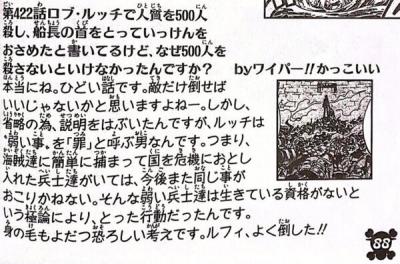 第422話ロブ・ルッチで人質を500人
殺し、船長の首をとっていっけんを
おさめたと書いてるけど、なぜ500人を
殺さないといけなかったんですか？ byワイパー!!かっこいい
本当にね。ひどい話です。敵だけ倒せば
いいじゃないかと思いますよねー。しかし、
省略の為、説明をはぶいたんですが、ルッチは
"弱い事"を「罪」と呼ぶ男なんです。つまり、
海賊達に簡単に捕まって国を危機におとし
入れた兵士達がいては、今後また同じ事が
おこりかねない。そんな弱い兵士達は生きている資格がないと
いう極論により、とった行動だったんです。
身の毛もよだつ恐ろしい考えです。ルフィ、よく倒した!!
88